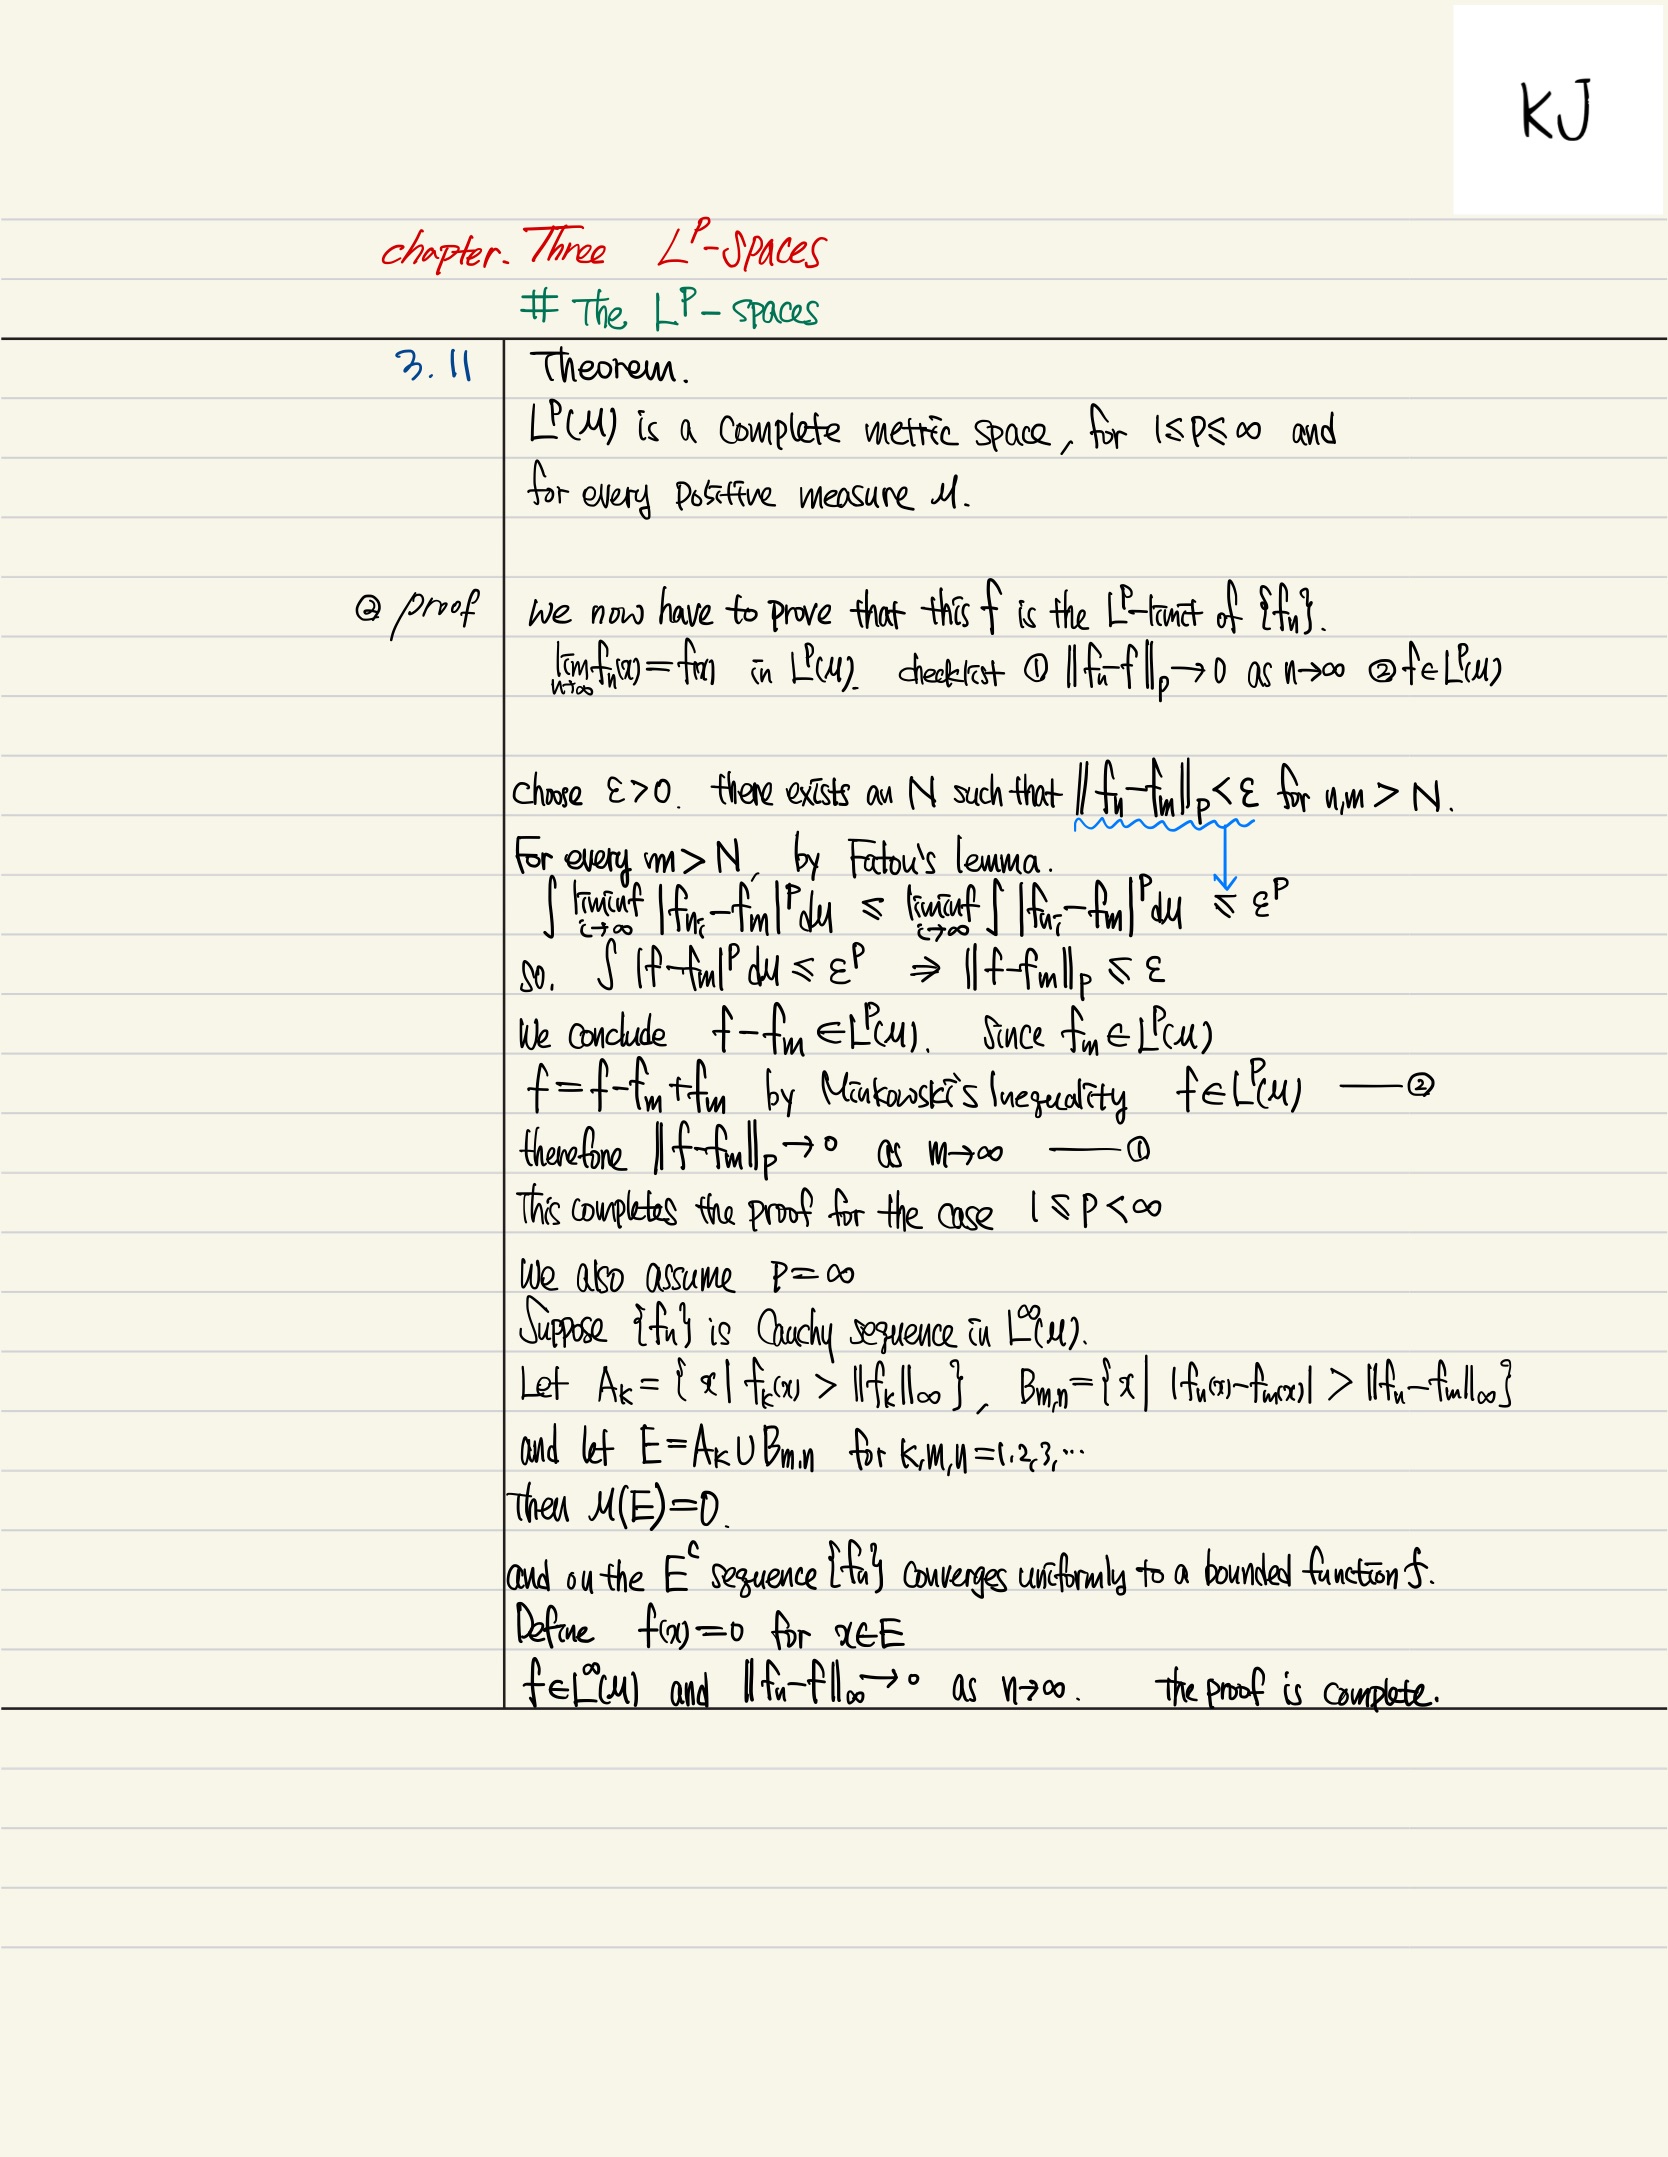 KJ
chapter. Three L^p-spaces
# The L^p-spaces
3.11 Theorem.
L^p(μ) is a complete metric space, for 1≤p≤∞ and
for every positive measure μ.
② proof we now have to prove that this f is the L^p-limit of {f_n}.
lim_{n→∞} f_n(x) = f(x) in L^p(μ). checklist ① ‖f_n-f‖_p → 0 as n→∞ ② f∈L^p(μ)
choose ε>0. there exists an N such that ‖f_n-f_m‖_p < ε for n,m > N.
For every m > N, by Fatou's lemma.
∫ liminf_{i→∞} |f_{n_i}-f_m|^p dμ ≤ liminf_{i→∞} ∫ |f_{n_i}-f_m|^p dμ ≤ ε^p
so. ∫ |f-f_m|^p dμ ≤ ε^p ⇒ ‖f-f_m‖_p ≤ ε
We conclude f-f_m ∈ L^p(μ). Since f_m ∈ L^p(μ)
f = f-f_m+f_m by Minkowski's Inequality f∈L^p(μ) —②
therefore ‖f-f_m‖_p → 0 as m→∞ —①
This completes the proof for the case 1 ≤ p < ∞
We also assume p=∞
Suppose {f_n} is Cauchy sequence in L^∞(μ).
Let A_k = { x | f_k(x) > ‖f_k‖_∞ }, B_{m,n} = { x | |f_n(x)-f_m(x)| > ‖f_n-f_m‖_∞ }
and let E = A_k ∪ B_{m,n} for k,m,n = 1,2,3,⋯
Then μ(E)=0.
and on the E^c sequence {f_n} converges uniformly to a bounded function f.
Define f(x)=0 for x∈E
f∈L^∞(μ) and ‖f_n-f‖_∞ → 0 as n→∞. The proof is complete.